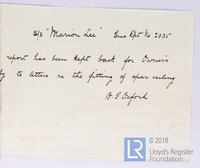 S/S "Marion Lee" Sns Rpt No 2035
report has been kept back for Owner's
to letters re the fitting of spar ceiling
© 2018
LR
Lloyd's Register
Foundation